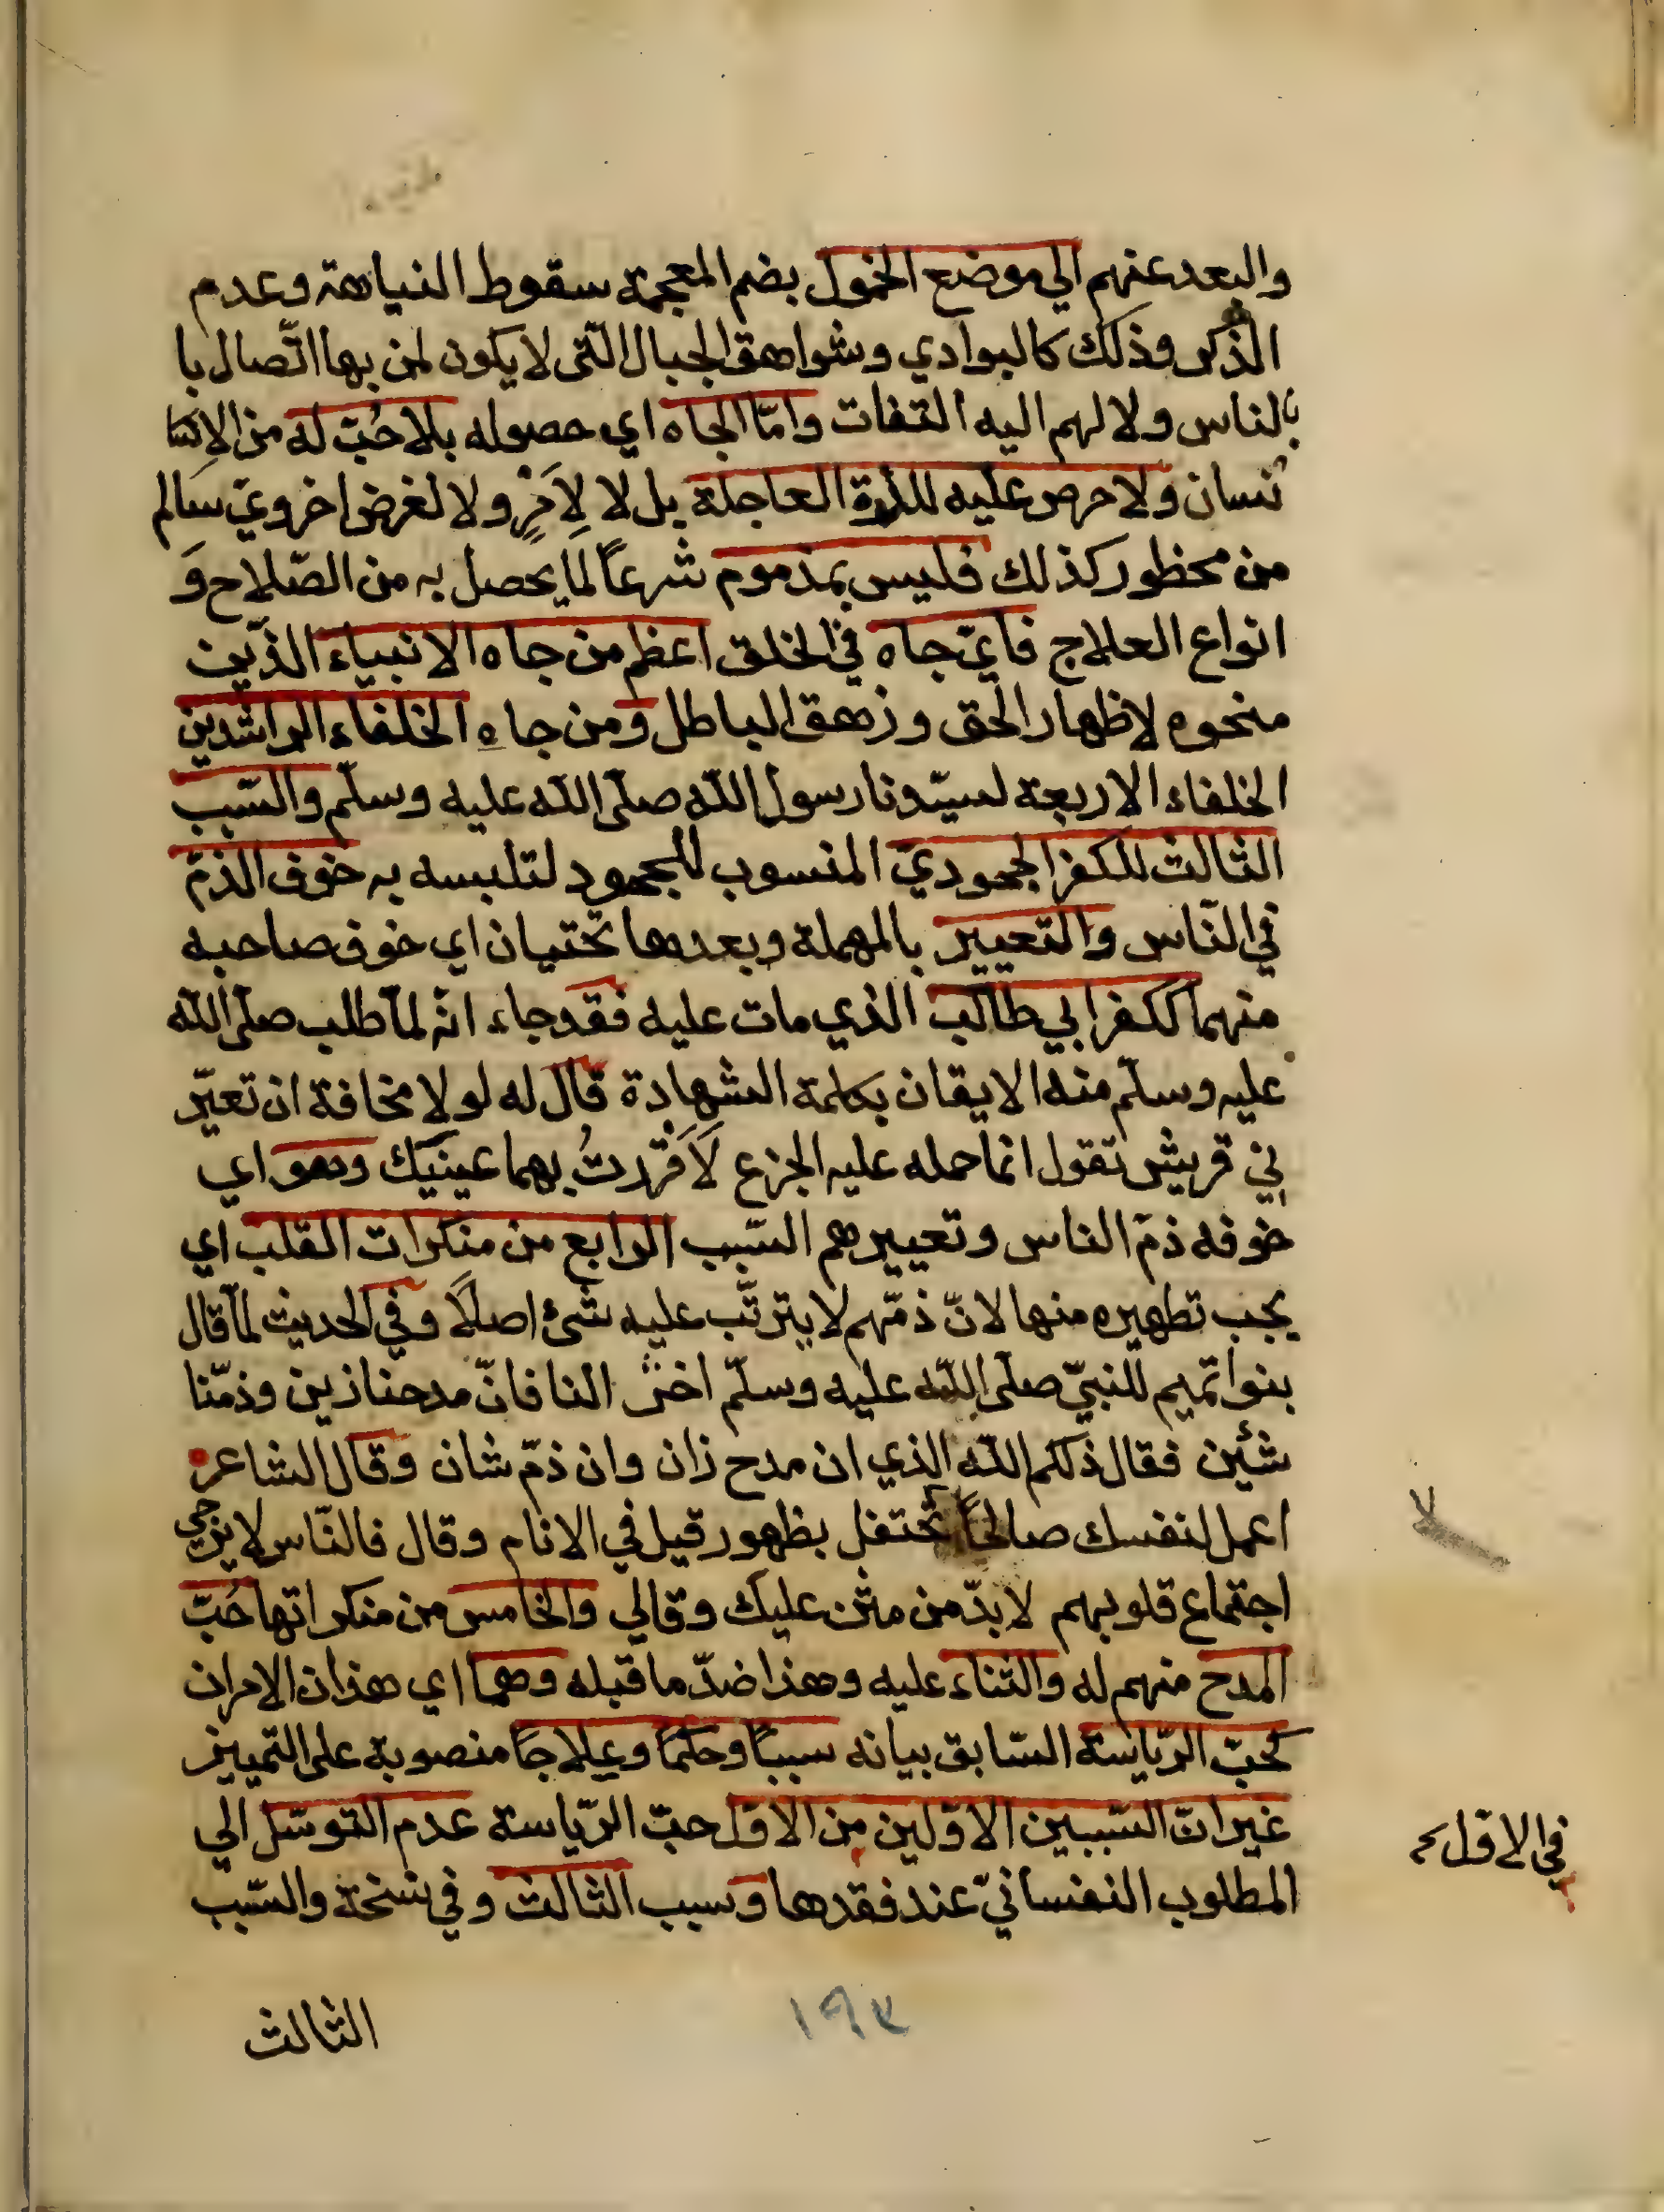 والبعد عنهم الي موضع الخمول بضم المعجمة سقوط النباهة وعدم
الذكر وذلك كالبوادي وشواهق الجبال الّتى لا يكون لمن بها اتّصال با
بالناس ولا لهم اليه التفات وامّا الجاه اي حصوله بلا حُبّ له من الاِنسا
نسان ولا حرص عليه للذة العاجلة بل لا لاِمَرٍ ولا لغرض اخرويّ سالم
من محظور كذلك فليس بمذموم شرعاً لما يحصل به من الصّلاح وَ
انواع العلاج فايّ جاه في الخلق اعظم من جاه الانبياء الذّين
منحوه لاظهار الحق وزهق الباطل ومن جاه الخلفاء الراشدين
الخلفاء الاربعة لسيّدنا رسول اللّه صلّى اللّه عليه وسلّم والسّبب
الثالث للكفر الجحوديّ المنسوب للجحود لتلبسه به خوف الذمّ
في النّاس والتعيير بالمهملة وبعدها تحتيان اي خوف صاحبه
منهما ككفر ابي طالب الذي مات عليه فقد جاء انّه لمّا طلب صلّى اللّه
عليه وسلّم منه الايقان بكلمة الشهادة قال له لولا مخافة ان تعيّر
ني قريش تقول انما حمله عليه الجزع لَاَقررتُ بهما عينيك وهو اي
خوفه ذمّ الناس وتعييرهم السّبب الرابع من منكرات القلب اي
يجب تطهيره منها لانّ ذمّهم لا يترتّب عليه شئ اصلًا وفي الحديث لمّا قال
بنوا تميم للنبيّ صلّى اللّه عليه وسلّم اخرُ النا فانّ مدحنا زين وذمّنا
شئين فقال ذلكم اللّه الذي ان مدح زان وان ذمّ شان وقال الشاعر
اعمل لنفسك صالحاً تحتفل بظهور قيل في الانام وقال فالنّاس لا يرجي
اجتماع قلوبهم لابدّ من مثن عليك وقالي والخامس من منكراتها حُبّ
المدح منهم له والثناء عليه وهذا ضدّ ما قبله وهما اي هذان الامران
كحبّ الرّياسة السّابق بيانه سببًا وحكمًا وعلاجًا منصوبة على التمييز
غير انّ السّببين الاوّلين من الاوّل حبّ الرّياسة عدم التوسّل الي
في الاول ٢
المطلوب النفسانيّ عند فقدها وسبب الثالث وفي نسخة والسّبب
الثالث
١٩٣
لا